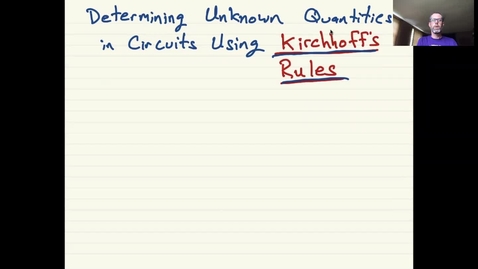 Determining Unknown Quantities
in Circuits Using Kirchhoff's
Rules